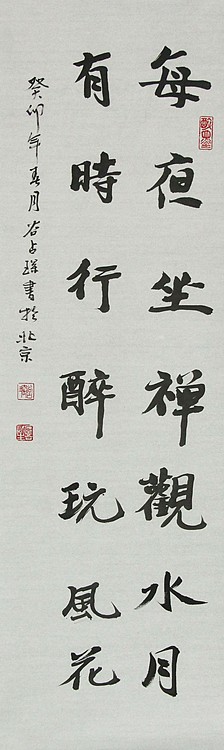 每夜坐禪觀水月
有時行醉玩風花
癸卯年春月谷占琛書於北京